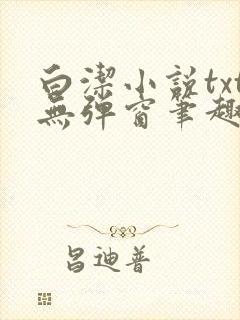 白潔小說txt
無彈窗筆趣
昌迪普